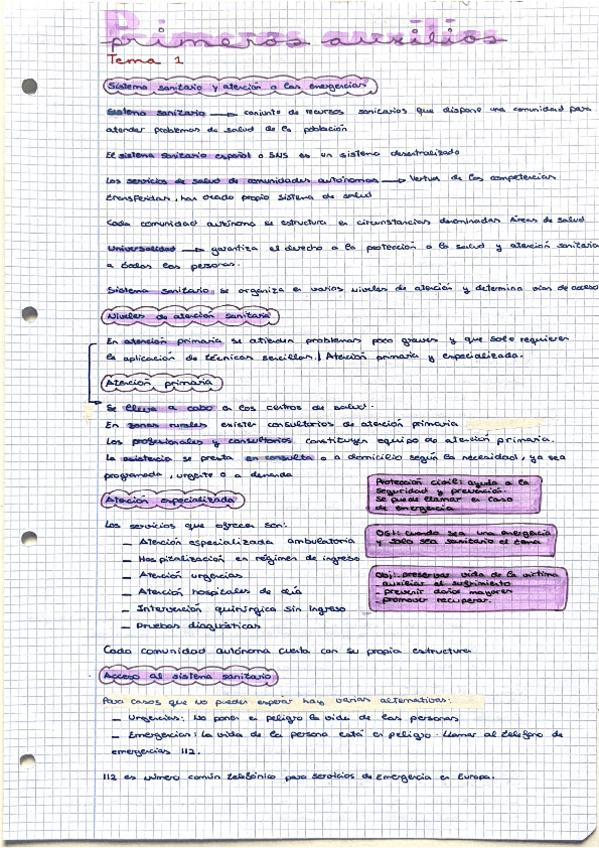 Primeros auxilios
Tema 1
Sistema sanitario y atención a las emergencias
Sistema sanitario → conjunto de recursos sanitarios que dispone una comunidad para
atender problemas de salud de la población
El sistema sanitario español o SNS es un sistema descentralizado
Los servicios de salud de comunidades autónomas → Vertud de las competencias
transferidas, han creado propio sistema de salud
Cada comunidad autónoma se estructura en circunstancias denominadas Áreas de salud
Universalidad → garantiza el derecho a la protección a la salud y atención sanitaria
a todas las personas.
Sistema sanitario se organiza en varios niveles de atención y determina vías de acceso
Niveles de atención sanitaria
En atención primaria se atienden problemas poco graves y que solo requieren
la aplicación de técnicas sencillas. | Atención primaria y especializada.
Atención primaria
Se lleva a cabo en los centros de salud.
En zonas rurales existen consultorios de atención primaria
Los profesionales y consultorios constituyen equipo de atención primaria.
La asistencia se presta en consulta o a domicilio según la necesidad, ya sea
programada, urgente o a demanda
Protección civil: ayuda a la
seguridad y prevención.
Se puede llamar en caso
de emergencia
Atención especializada
Los servicios que ofrecen son:
– Atención especializada ambulatoria
– Hospitalización en régimen de ingreso
– Atención urgencias
– Atención hospitales de día
– Intervención quirúrgica sin ingreso
– Pruebas diagnósticas
061: cuando sea una emergencia
y solo sea sanitario el tema
Obj: preservar vida de la víctima
- auxiliar el sufrimiento
- prevenir daños mayores
- promover recuperar.
Cada comunidad autónoma cuenta con su propia estructura
Acceso al sistema sanitario
Para casos que no pueden esperar hay varias alternativas:
– Urgencias: No ponen en peligro la vida de las personas
– Emergencias: La vida de la persona está en peligro. Llamar al teléfono de
emergencias 112.
112 es número común telefónico para servicios de Emergencia en Europa.